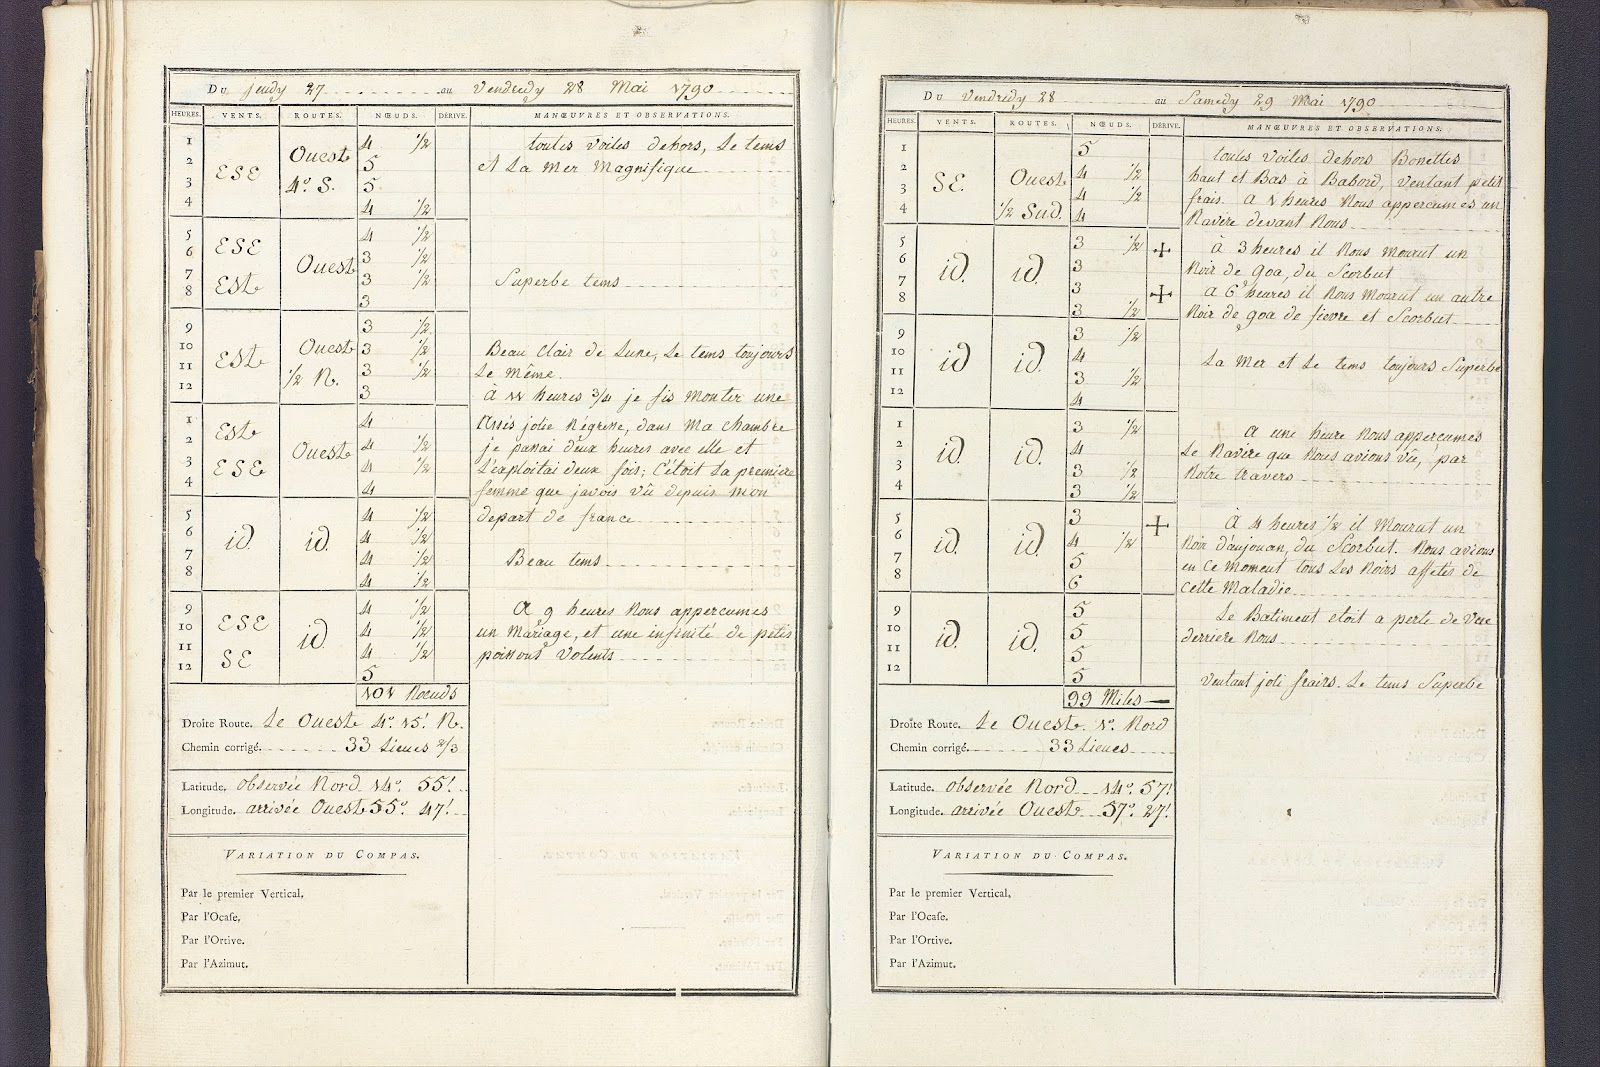 Du jeudy 27 au Vendredy 28 Mai 1790
HEURES. VENTS. ROUTES. NŒUDS. DÉRIVE. MANŒUVRES ET OBSERVATIONS.
1 4 1/2 toutes voiles dehors, Le tems
2 ESE Ouest 5 et La Mer Magnifique
3 4° S. 5
4 4 1/2
5 ESE 4 1/2
6 Ouest 3 1/2
7 Est 3 1/2 Superbe tems
8 3
9 3 1/2
10 Est Ouest 3 1/2 Beau Clair de Lune, Le tems toujours
11 1/2 N. 3 1/2 Le même.
12 3 À 11 heures 3/4 je fis Monter une
1 Est 4 Assés jolie Négresse, dans Ma Chambre
2 Ouest 4 1/2 je passai deux heures avec elle et
3 ESE 4 1/2 L'exploitai deux fois; C'étoit La premiere
4 4 femme que javois vû depuis mon
5 4 1/2 depart de france
6 id. id. 4 1/2
7 4 1/2 Beau tems
8 4 1/2
9 ESE 4 1/2 A 9 heures Nous appercumes
10 id. 4 1/2 un Mariage, et une infinité de petis
11 SE 4 1/2 poissons Volents
12 5
101 Nœuds
Droite Route. Le Ouest 4° 15' N.
Chemin corrigé. 33 Lieues 2/3
Latitude. observée Nord 14° 55'
Longitude. arrivée Ouest 55° 47'
VARIATION DU COMPAS.
Par le premier Vertical.
Par l'Ocase.
Par l'Ortive.
Par l'Azimut.
Du Vendredy 28 au Samedy 29 Mai 1790
HEURES. VENTS. ROUTES. NŒUDS. DÉRIVE. MANŒUVRES ET OBSERVATIONS.
1 5 toutes voiles dehors Bonettes
2 SE. Ouest 4 1/2 haut et Bas à Babord, Ventant petit
3 1/2 Sud. 4 1/2 frais. A 1 heures Nous appercumes un
4 4 Navire devant Nous
5 3 1/2 À 3 heures il Nous Mourut un
6 id. id. 3 Noir de goa, du Scorbut
7 3 A 6 heures il Nous Mourut un autre
8 3 1/2 Noir de goa de fievre et Scorbut
9 3 1/2
10 id. id. 4 La Mer et Le tems toujours Superbe
11 3 1/2
12 4
1 3 1/2 A une heure Nous appercumes
2 id. id. 4 Le Navire que Nous avions Vû, par
3 3 1/2 Notre travers
4 3 1/2
5 3 À 4 heures 1/2 il Mourut un
6 id. id. 4 1/2 Noir d'anjouan, du Scorbut. Nous avions
7 5 en Ce Moment tous Les Noirs affetés de
8 6 Cette Maladie
9 5 Le Batiment etoit a perte de Vue
10 id. id. 5 derriere Nous
11 5
12 5 Ventant joli frairs. Le tems Superbe
99 Miles
Droîte Route. Le Ouest 1° Nord
Chemin corrigé. 33 Lieues
Latitude. observée Nord 14° 57'
Longitude. arrivée Ouest 57° 27'
VARIATION DU COMPAS.
Par le premier Vertical.
Par l'Ocase.
Par l'Ortive.
Par l'Azimut.